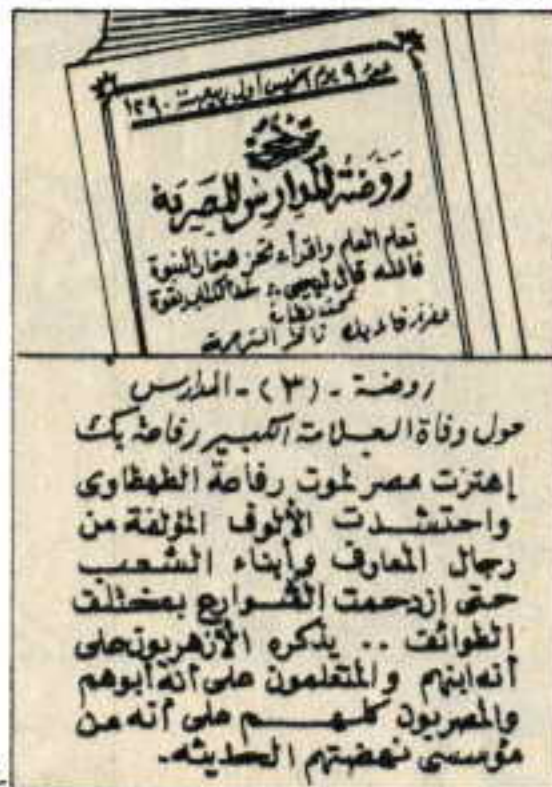 نمرة ٩ يوم الخميس اول ربيع سنة ١٢٩٠
روضة المدارس المصرية
تعلم العلم واقرأ تحز فخار النبوة
فالله قال ليحيى خذ الكتاب بقوة
تحت نظارة
ناظر الترجمة
روضة - (٣) - المدارس
حول وفاة العلامة الكبير رفاعة بك
إهتزت مصر لموت رفاعة الطهطاوى
واحتشدت الألوف المؤلفة من
رجال المعارف وأبناء الشعب
حتى إزدحمت الشوارع بمختلف
الطوائف .. يذكره الأزهريون على
أنه ابنهم والمتعلمون على أنه أبوهم
والمصريون كلهم على أنه من
مؤسسى نهضتهم الحديثه.